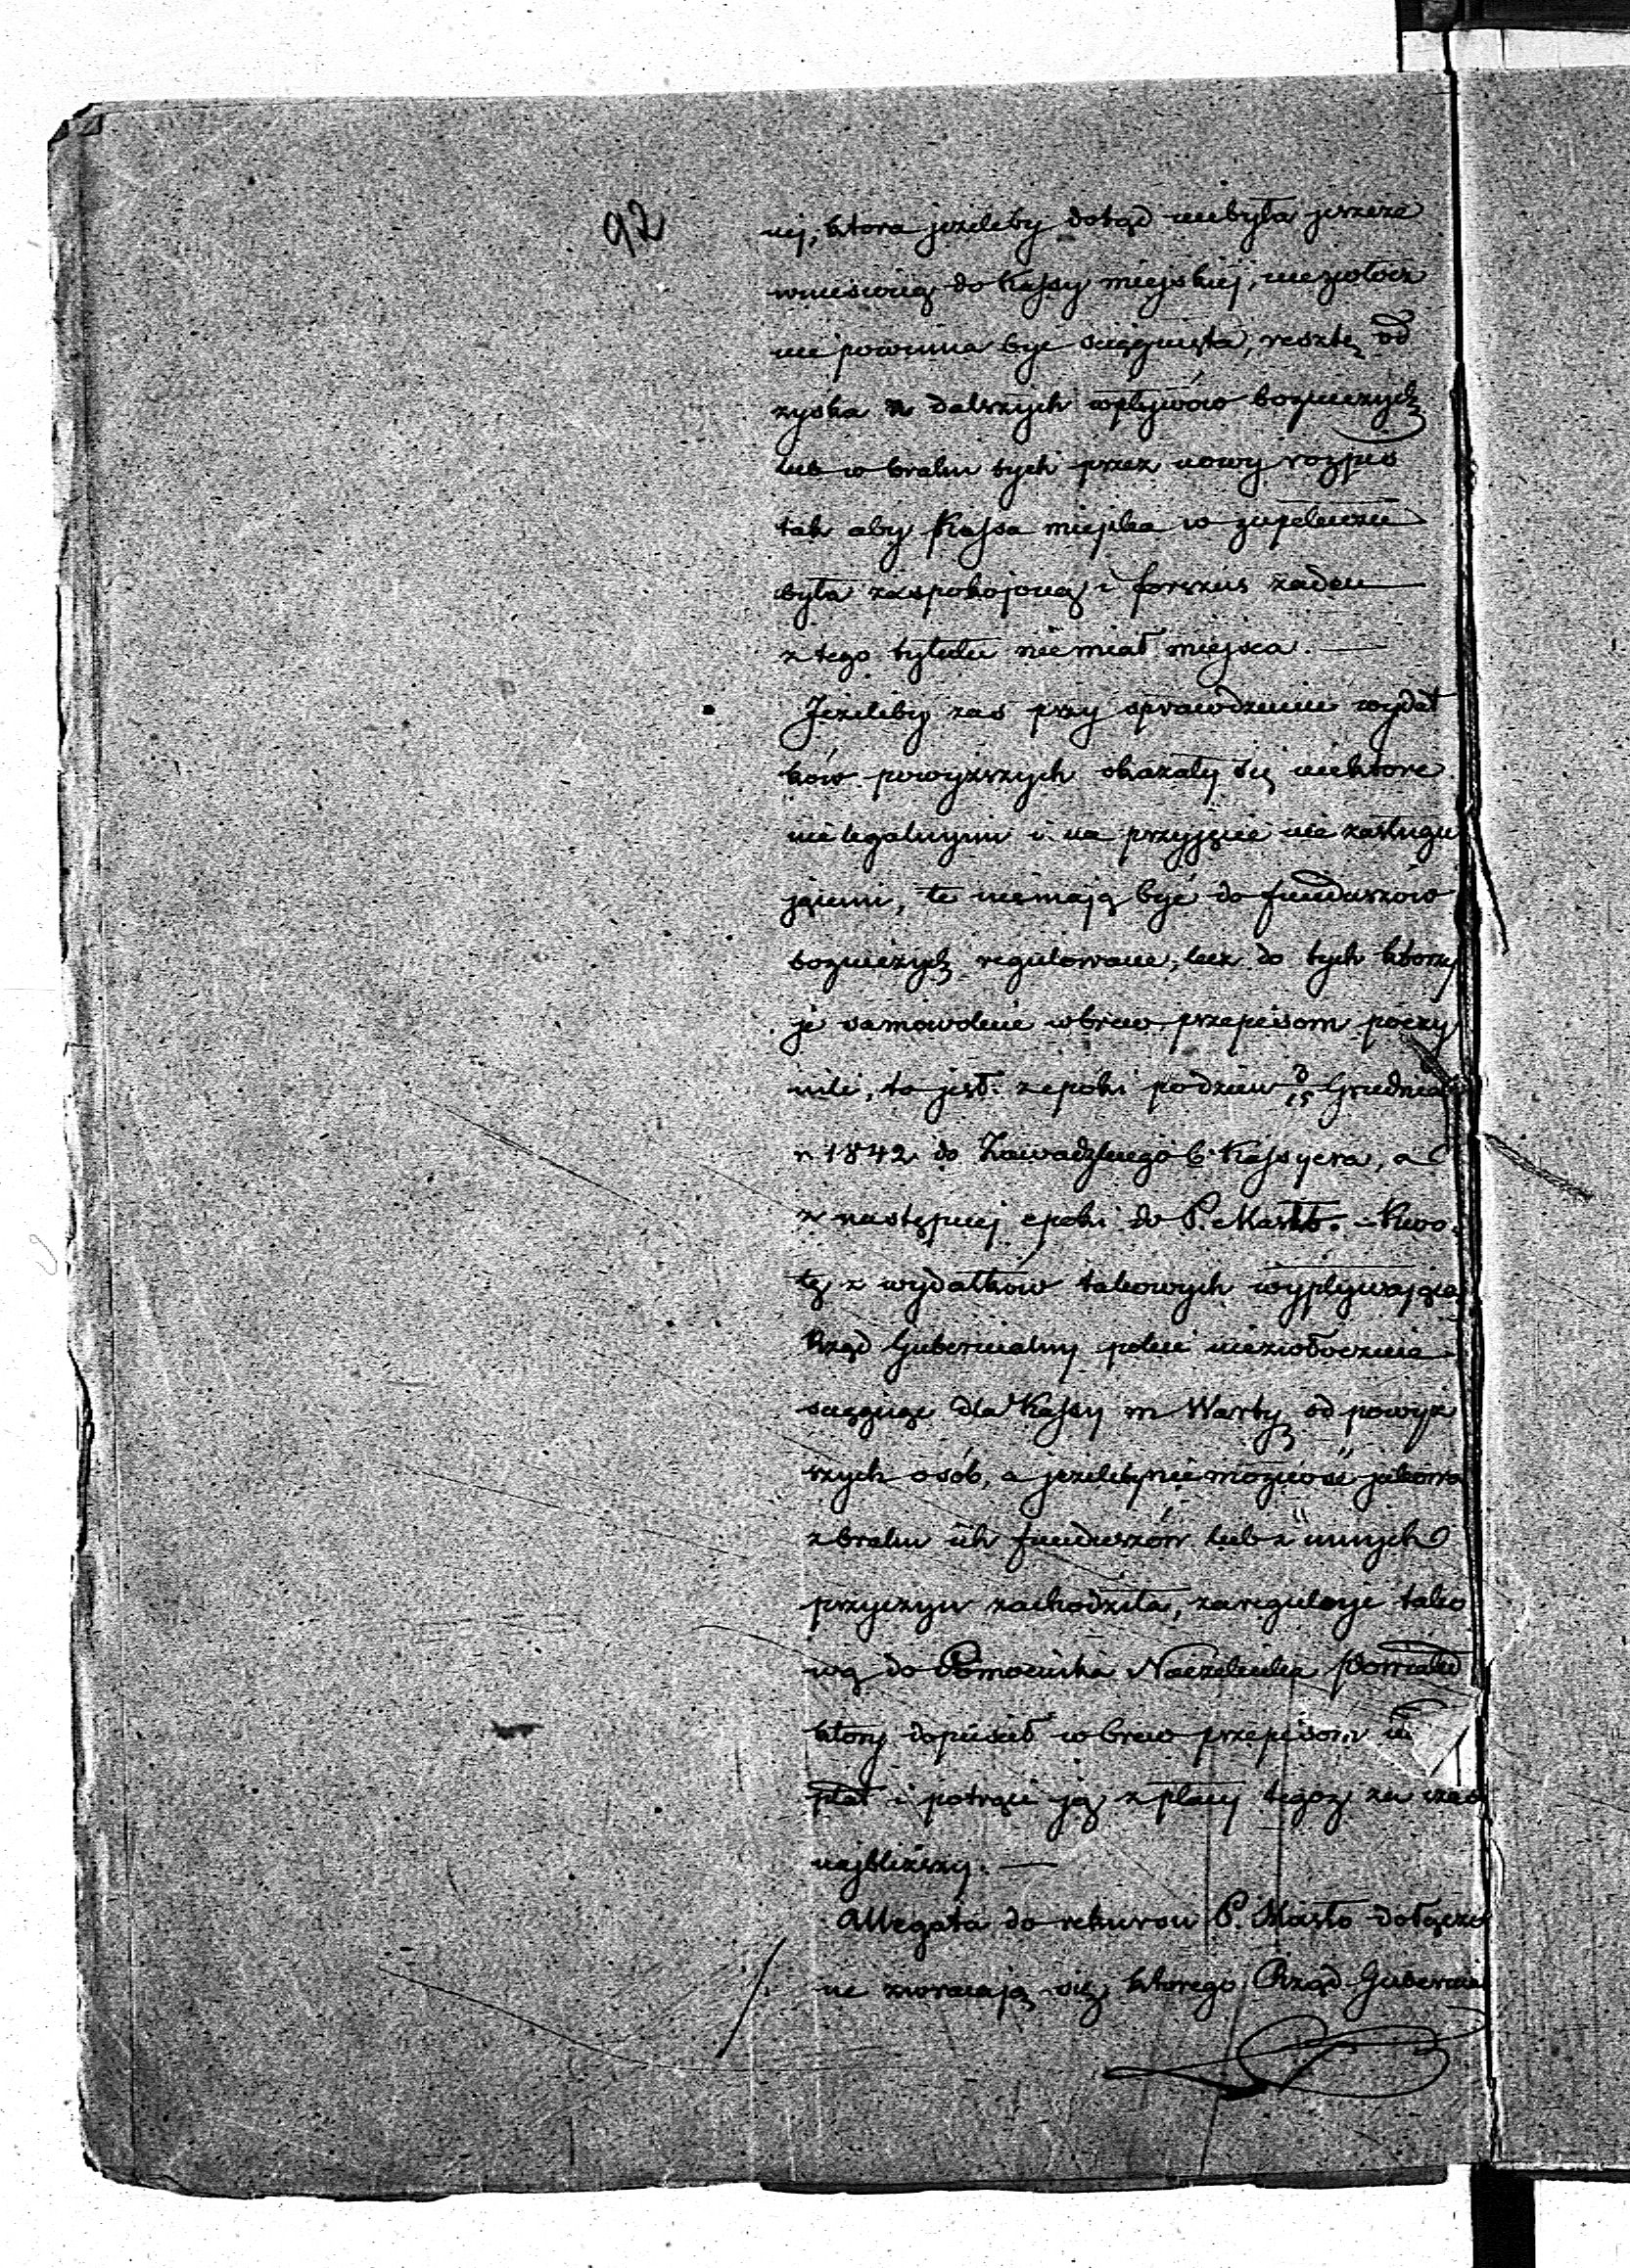 92
nej, ktora jeżeliby dotąd niebyła jeszcze
wniesioną do Kassy miejskiej, niezwłocz
nie powinna być ściągnięta, resztę od
zyska z dalszych wpływów bożniczych
lub w braku tych przez nowy rozpis
tak aby Kassa miejska w zupełności
była zaspokojoną i forszus żaden
z tego tytułu niemiał miejsca. —
Jeżeliby zaś przy sprawdzeniu wydat
ków powyższych okazały się niektore
nielegalnymi i na przyjęcie nie zasługu
jącemi, te niemają być do funduszów
bożniczych regulowane, lecz do tych ktorzy
je samowolnie wbrew przepisom poczy
nili, to jest: z epoki po dzień 3/15 Grudnia
r 1842 do Zawadzkiego b. Kassyera, a
z następnej epoki do P. Masło. – Kwo
tę z wydatków takowych wypływającą
Rząd Gubernialny poleci niezwłocznie
ściągnąć dla Kassy m Warty od powyż
szych osób, a jeżeliby niemożność jakowa
z braku ich funduszów lub z innych
przyczyn zachodziła, zareguluje tako
wą do Pomocnika Naczelnika Powiatu
ktory dopuścił wbrew przepisom wy
płat i potrąci ją z płacy tegoż za czas
najbliższy. —
Allegata do rekursu P. Masło dołączo
ne zwracają się, ktorego Rząd Gubernia